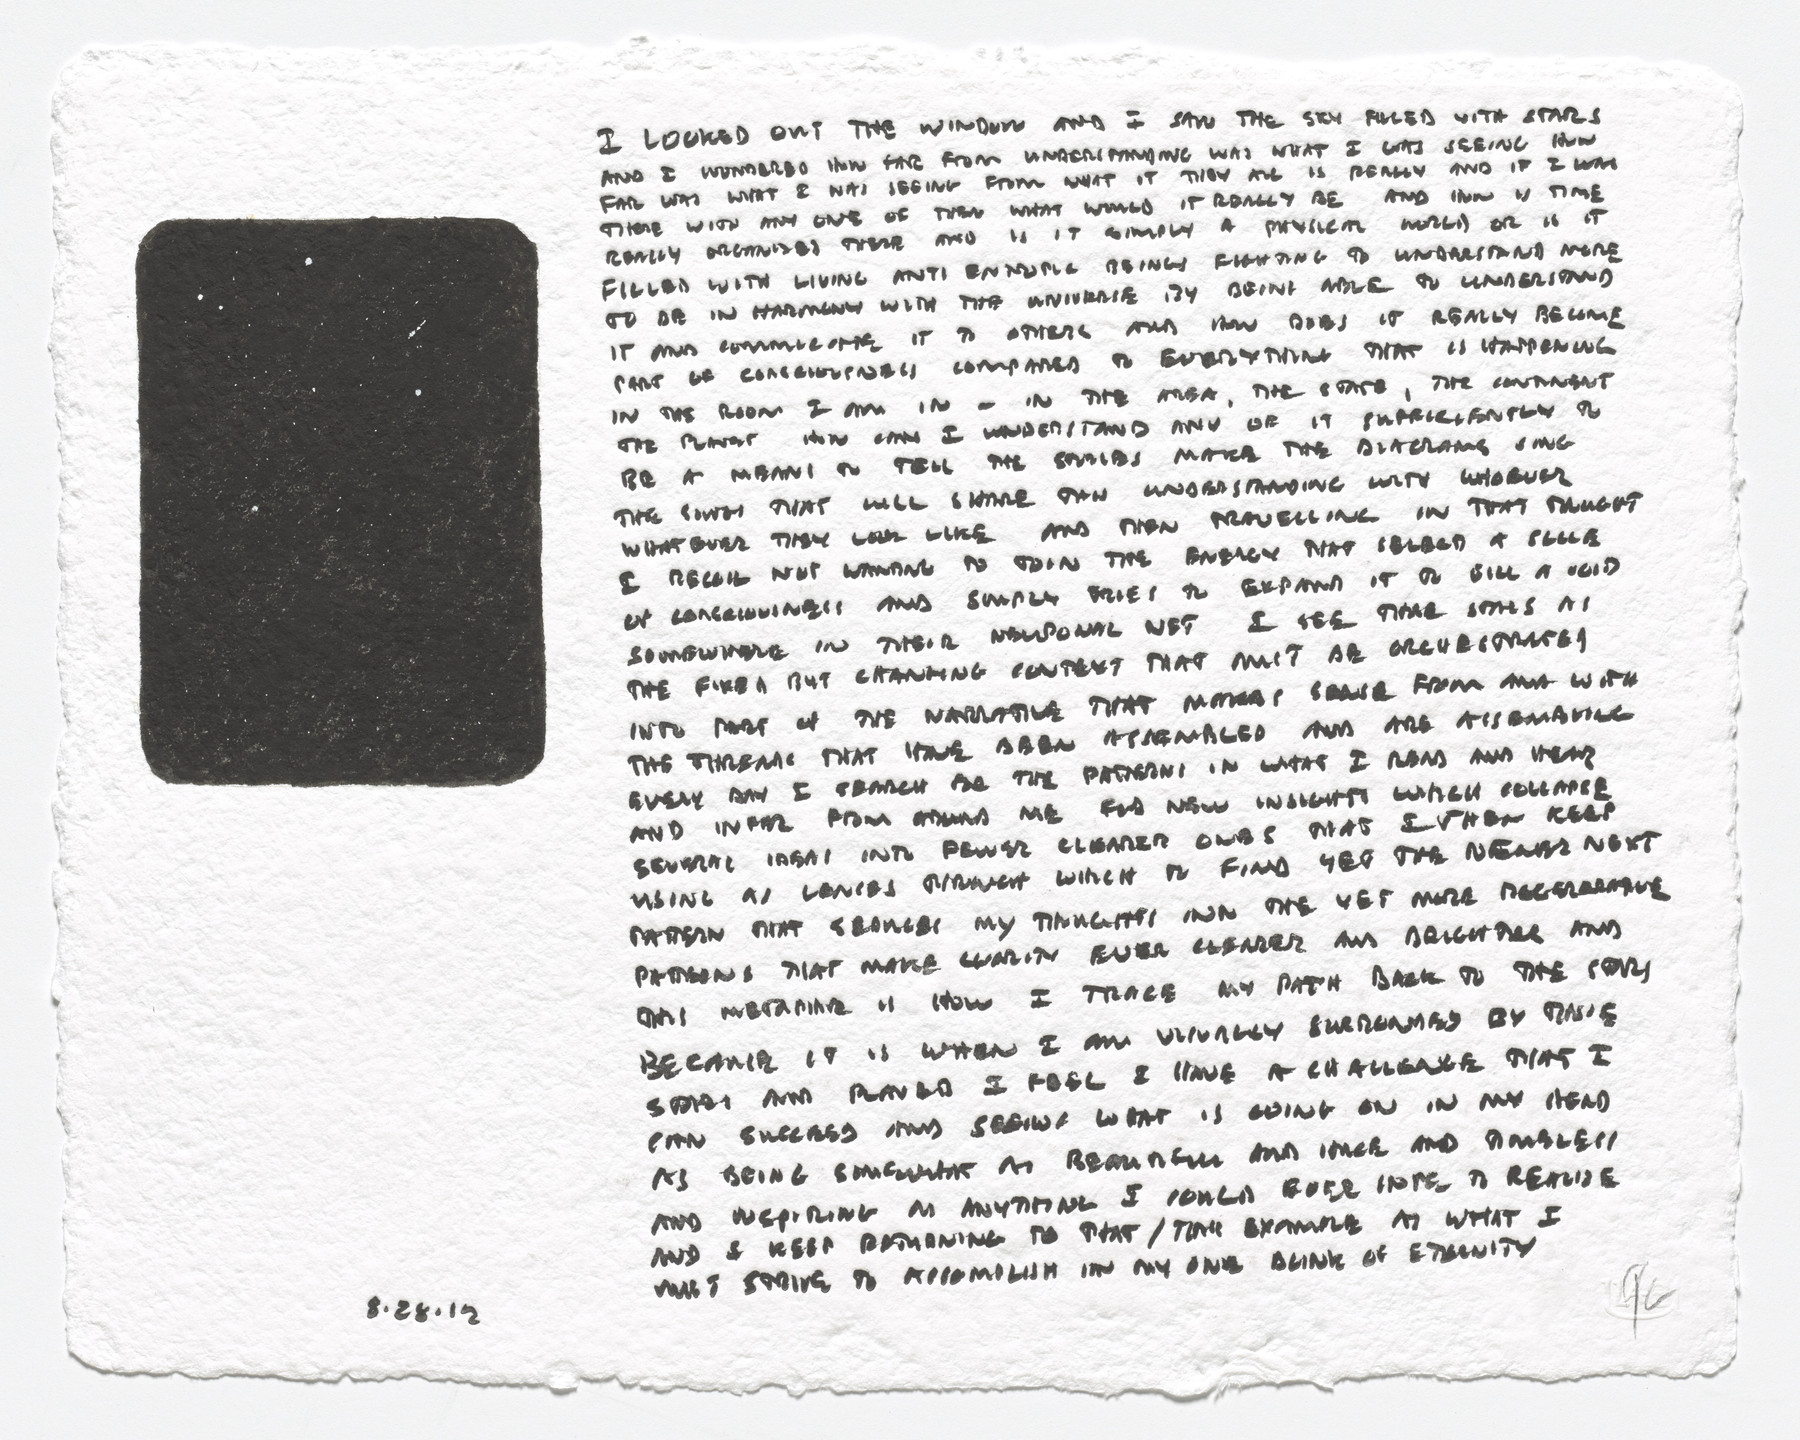 I LOOKED OUT THE WINDOW AND I SAW THE SKY FILLED WITH STARS
AND I WONDERED HOW FAR FROM UNDERSTANDING WAS WHAT I WAS SEEING HOW
FAR WAS WHAT I WAS SEEING FROM WHAT IT ALL IS REALLY AND IF I WAS
THERE WITH ANY ONE OF THEM WHAT WOULD IT REALLY BE AND HOW IS TIME
REALLY ORGANIZED THERE AND IS IT SIMPLY A PHYSICAL WORLD OR IS IT
FILLED WITH LIVING ANTI ENTROPIC BEINGS FIGHTING TO UNDERSTAND MORE
TO BE IN HARMONY WITH THE UNIVERSE BY BEING ABLE TO UNDERSTAND
IT AND COMMUNICATE IT TO OTHERS AND HOW DOES IT REALLY BECOME
PART OF CONSCIOUSNESS COMPARED TO EVERYTHING THAT IS HAPPENING
IN THE ROOM I AM IN - IN THE AREA, THE STATE, THE CONTINENT
THE PLANET HOW CAN I UNDERSTAND ANY OF IT SUFFICIENTLY TO
BE A MEANS TO TELL THE STORIES MAKE THE DIAGRAMS SING
THE SONGS THAT WILL SHARE THIS UNDERSTANDING WITH WHOEVER
WHATEVER THEY LOOK LIKE AND THEN TRAVELLING IN THAT THOUGHT
I RECOIL NOT WANTING TO JOIN THE ENERGY THAT A PIECE
OF CONSCIOUSNESS AND SIMPLY TRIES TO EXPAND IT TO FILL A VOID
SOMEWHERE IN THEIR NEURONAL NET I SEE THESE STARS AS
THE FIXED BUT CHANGING CONTEXT THAT MUST BE ORCHESTRATED
INTO PART OF THE NARRATIVE THAT MAKES SENSE FROM AND WITH
THE THREADS THAT HAVE BEEN ASSEMBLED AND ARE ASSEMBLING
EVERY DAY I SEARCH FOR THE PATTERNS IN WHAT I READ AND HEAR
AND INFER FROM AROUND ME FOR NEW INSIGHTS WHICH COLLAPSE
SEVERAL IDEAS INTO FEWER CLEARER ONES THAT I THEN KEEP
USING AS LENSES THROUGH WHICH TO FIND YET THE NEWER NEXT
PATTERN THAT SEDUCES MY THOUGHTS INTO THE YET MORE
PATTERNS THAT MAKE CLARITY EVER CLEARER AND BRIGHTER AND
THIS METAPHOR IS HOW I TRACE MY PATH BACK TO THE STARS
BECAUSE IT IS WHEN I AM VISUALLY SURROUNDED BY THOSE
STARS AND PLANETS I FEEL I HAVE A CHALLENGE THAT I
CAN SUCCEED AND SEEING WHAT IS GOING ON IN MY HEAD
AS BEING SOMEWHAT AS BEAUTIFUL AND HUGE AND TIMELESS
AND INSPIRING AS ANYTHING I COULD EVER HOPE TO REALIZE
AND I KEEP RETURNING TO THAT / THIS EXAMPLE AS WHAT I
MUST STRIVE TO ACCOMPLISH IN MY ONE BLINK OF ETERNITY
8.28.12